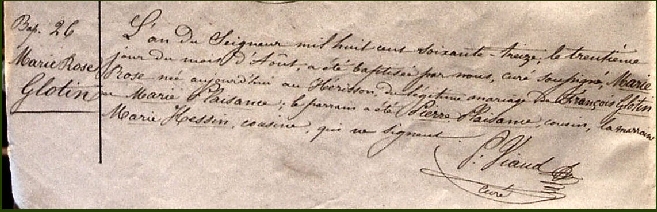 Bap. 26
Marie Rose
Glotin
L'an du Seigneur mil huit cent soixante treize, le trentième
jour du mois d'Août, a été baptisée par nous, curé soussigné, Marie
Rose née aujourd'hui au Hérisson, du légitime mariage de François Glotin
et Marie Plaisance; le parrain a été Pierre Plaisance, cousin, la marraine
Marie Hessin, cousine, qui ne signent.
P. Viaud
curé